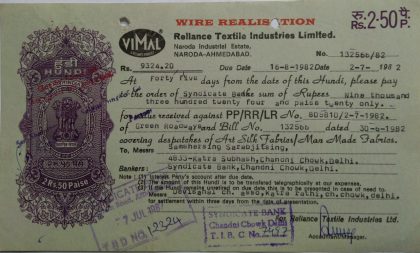 WIRE REALISATION
रु. 2·50 पै.
Rs. P.
VIMAL
Reliance Textile Industries Limited.
Naroda Industrial Estate,
NARODA-AHMEDABAD.
No. 132566/82
हुंडी
HUNDI
Rs. 9324.20 Due Date 16-8-1982 Date 2-7- 1982
At Forty five days from the date of this Hundi, please pay
to the order of Syndicate Bank sum of Rupees Nine thousand
three hundred twenty four and paise twenty only.
for value received against PP/RR/LR 808810/2-7-1982.
of Green Roadways and Bill No. 132566 dated 30-6-1982
covering despatches of Art Silk Fabrics/Man Made Fabrics.
To Messrs Samshersing Sarabjitsing,
4833-Katra Subhash, Chandni Chowk, Delhi.
Bankers: Syndicate Bank, Chandni Chowk, Delhi.
Note: (1) Interest Party's account after due date.
(2) The amount of this Hundi is to be transferred telegraphically at our expenses.
(3) If this Hundi remains unrealised on due date this is to be presented in case of need to:
for settlement within three days from the date of presentation.
2 Rs. 50 Paise
7 JUL 1982
T B D NO 12324
SYNDICATE BANK
Chandni Chowk Delhi
T. I. B. C. No.
for Reliance Textile Industries Ltd.
Accountant/Manager.